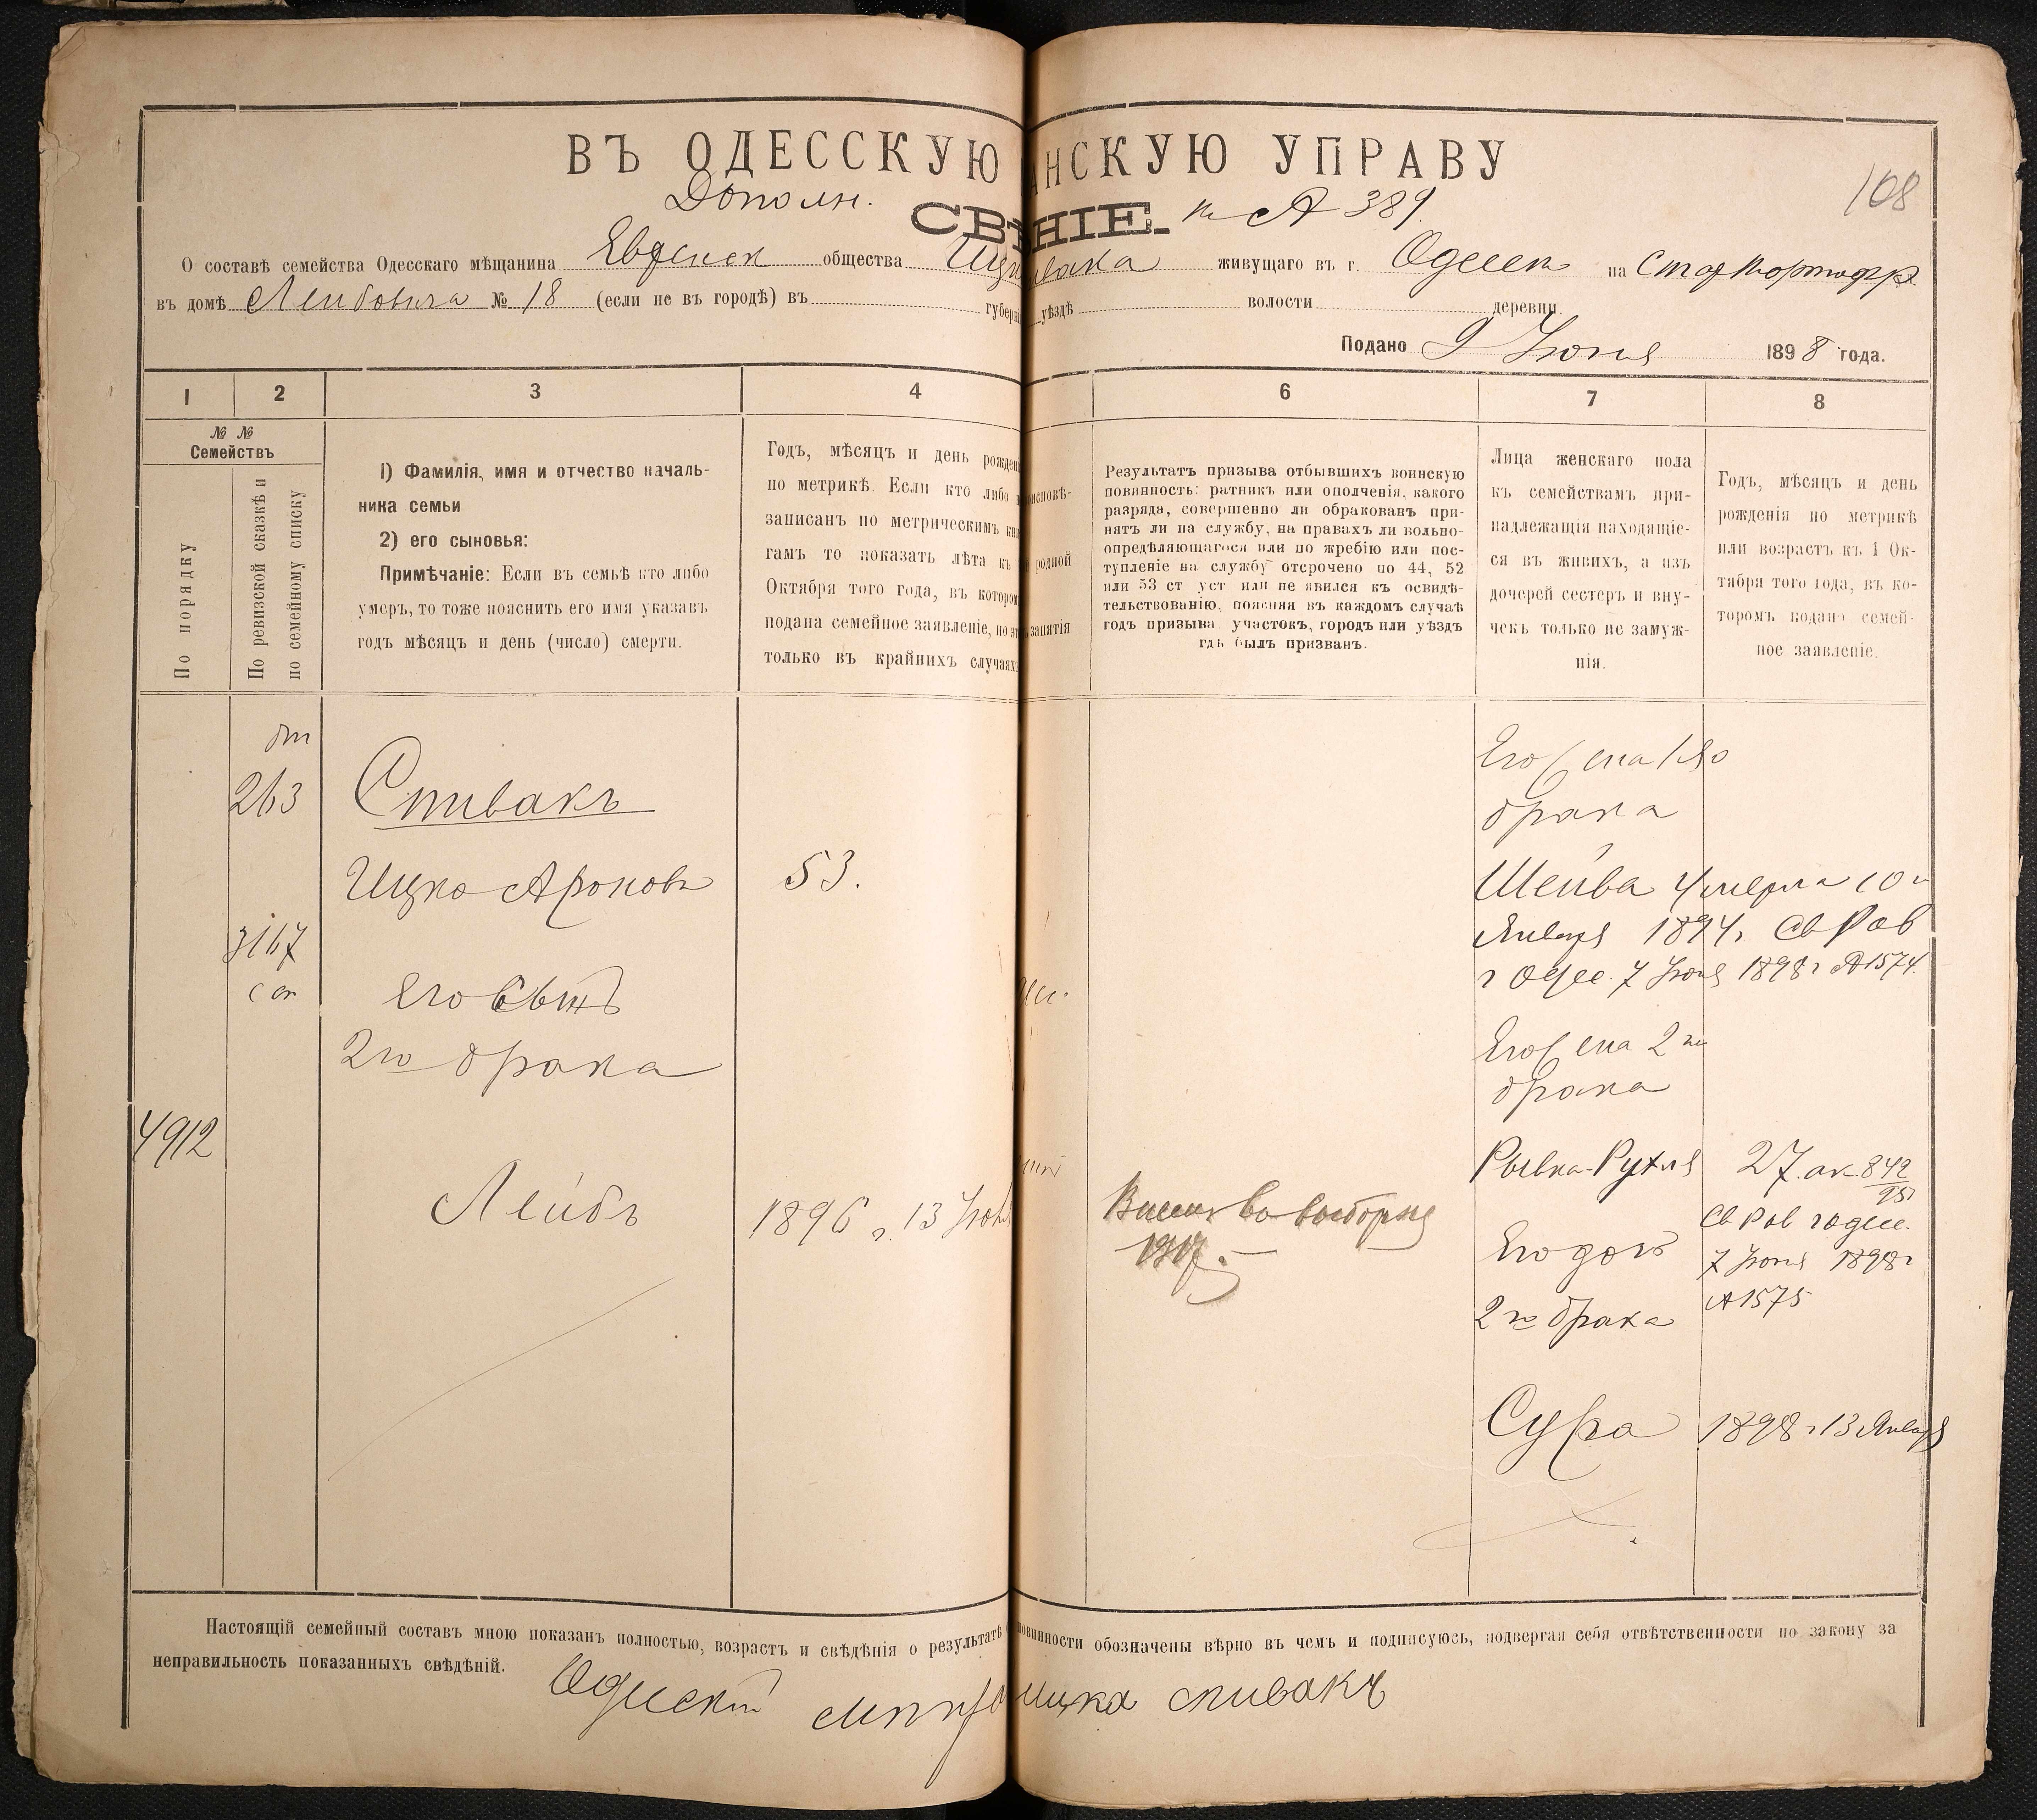 108
ВЪ ОДЕССКУЮ АНСКУЮ УПРАВУ
Дополн. СВ НІЕ. 389.
О составѣ семейства Одесскаго мѣщанина Еврейск общества Спивака живущаго въ г. Одессѣ на СтарПортофр
въ домѣ Лейбовича № 18 (если не въ городѣ) въ губерн уѣздѣ волости деревни
Подано 9 Іюня 1898 года.
1 2 3 4 6 7 8
№ №
Семействъ
По порядку
По ревизской сказкѣ и
по семейному списку
1) Фамилія, имя и отчество началь-
ника семьи
2) его сыновья:
Примѣчаніе: Если въ семьѣ кто либо
умеръ, то тоже пояснить его имя указавъ
годъ мѣсяцъ и день (число) смерти.
Годъ, мѣсяцъ и день рожден
по метрикѣ. Если кто либо н
записанъ по метрическимъ кни
гамъ то показать лѣта къ
Октября того года, въ которо
подана семейное заявленіе, но эт
только въ крайнихъ случаях
исповѣ-
родной
занятія
Результатъ призыва отбывшихъ воинскую
повинность: ратникъ или ополченія, какого
разряда, совершенно ли обракованъ при-
нятъ ли на службу, на правахъ ли вольно-
опредѣляющагося или по жребію или пос-
тупленіе на службу отсрочено по 44, 52
или 53 ст уст или не явился къ освидѣ-
тельствованію, поясняя въ каждомъ случаѣ
годъ призыва участокъ, городъ или уѣздъ
гдѣ былъ призванъ.
Лица женскаго пола
къ семействамъ при-
надлежащія находящіе-
ся въ живихъ, а изъ
дочерей сестеръ и вну-
чекъ только не замуж-
нія.
Годъ, мѣсяцъ и день
рожденія по метрикѣ
или возрастъ къ 1 Ок-
тября того года, въ ко-
торомъ подано семей-
ное заявленіе.
263
Спивакъ
Ицко Ароновъ
53.
3167
Его Сынъ
2го брака
4912
Лейбъ
1896 г. 13 Іюня
1917.
Его жена 1го
брака
Шейва умерла 10
Января 1894г Св Рав
г Одес. 7 Іюня 1898г № 1574.
Его жена 2го
брака
Рывка-Рухля
27. ак 842
95
Св Рав г Одес.
7 Іюня 1898г
№ 1575
Его дочь
2го брака
Сура
1898 г 13 Января
Настоящій семейный составъ мною показанъ полностью, возрастъ и свѣдѣнія о результатѣ повинности обозначены вѣрно въ чемъ и подписуюсь, подвергая себя отвѣтственности по закону за
неправильность показанныхъ свѣдѣній.
Одесскій Ицка спивакъ